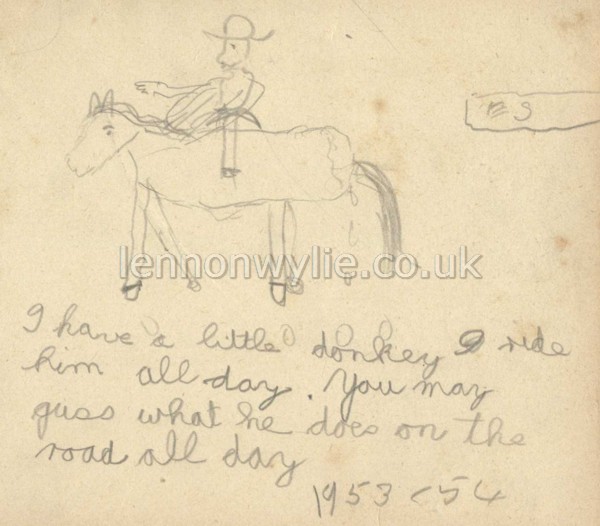 lennonwylie.co.uk
I have a little donkey I ride
him all day. You may
guss what he does on the
road all day
1953 <54